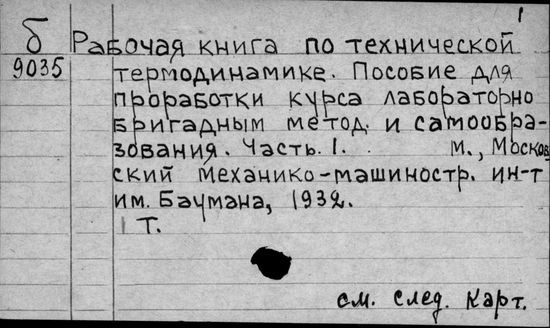 1
б Рабочая книга по технической
9035 термодинамике. Пособие для
проработки курса лабораторно
бригадным метод. и самообра-
зования. Часть I. м., Москов
ский механико-машиностр. ин-т
им. Баумана, 1932.
1 т.
см. след. карт.